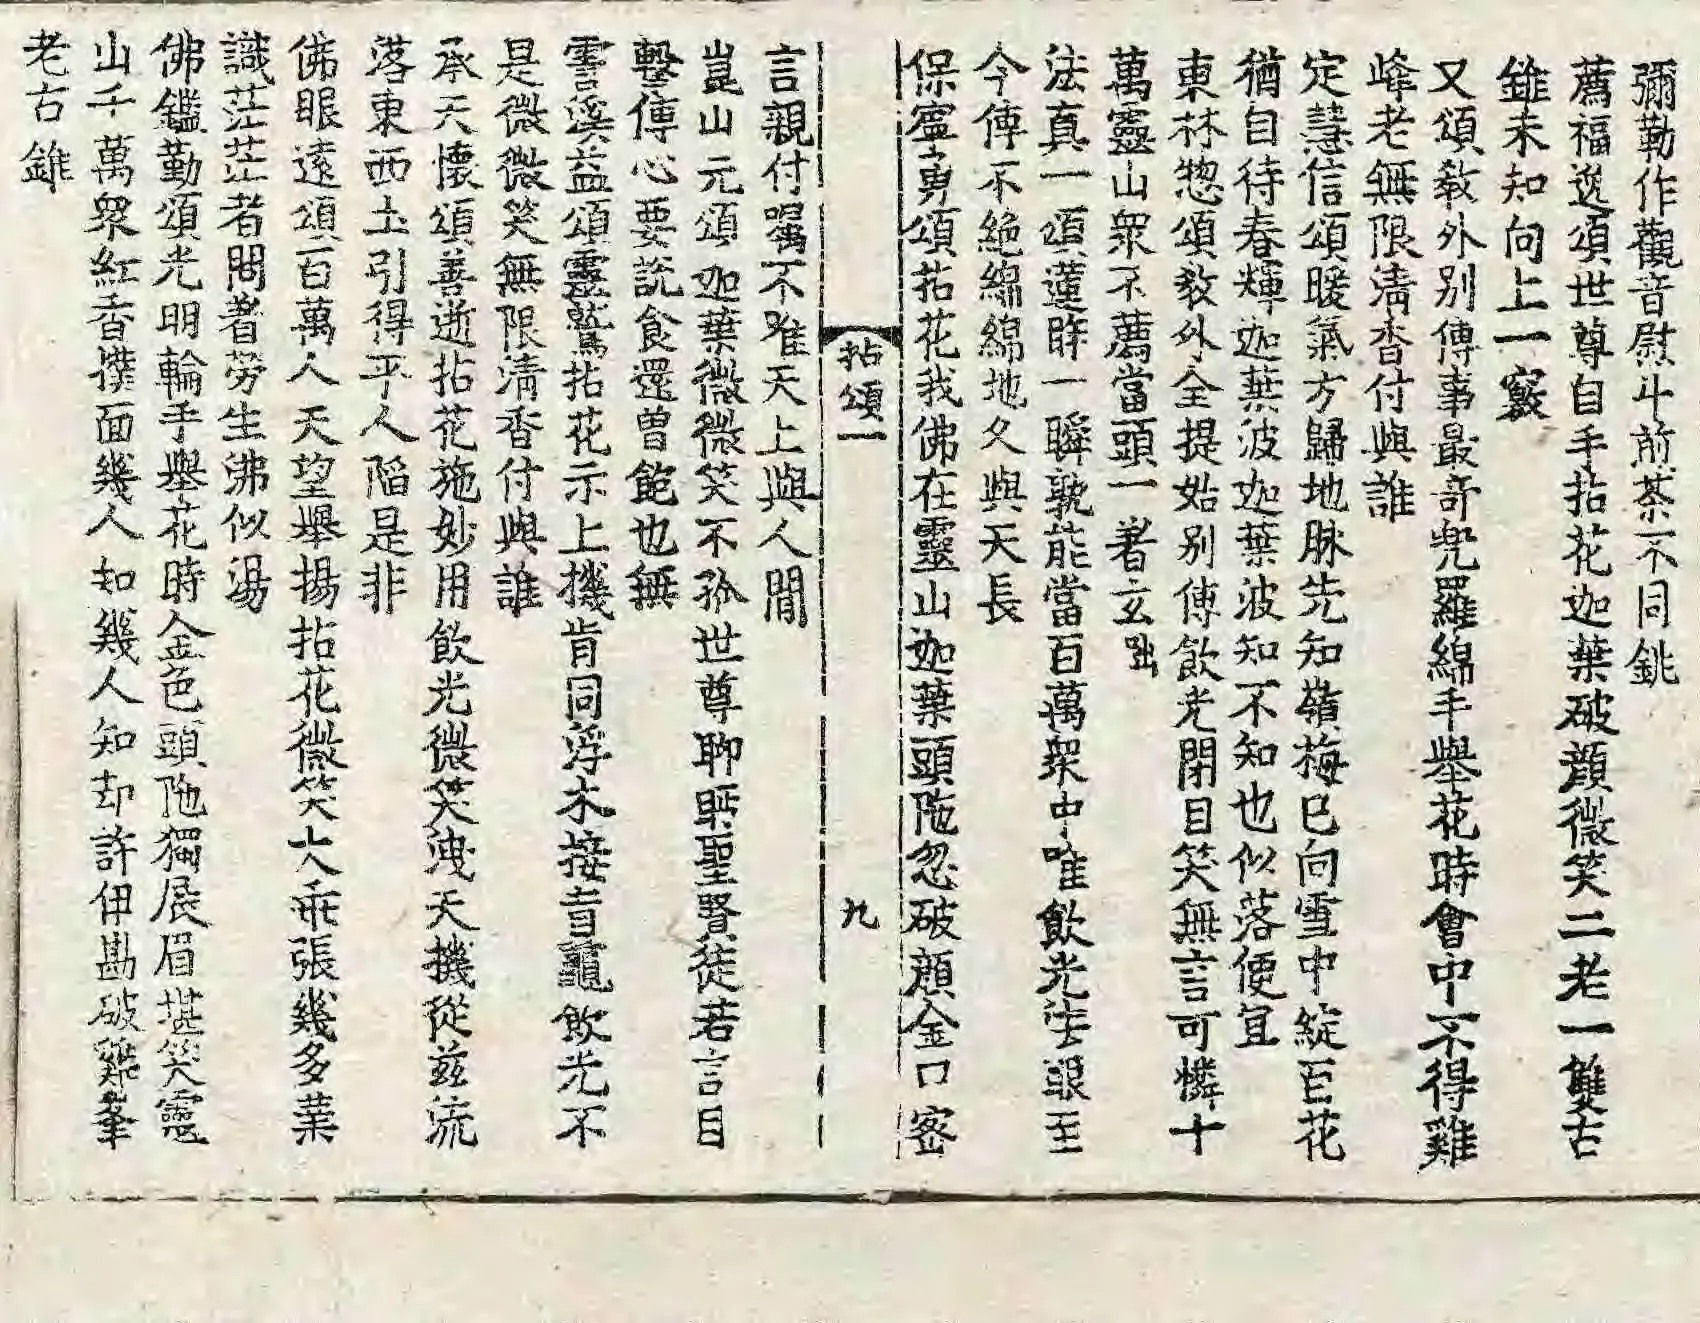 彌勒作觀音慰斗煎茶不同銚
薦福逸頌世尊自手拈花迦葉破顏微笑二老一雙古
錐未知向上一竅
又頌敎外别傳事最竒兠羅綿手舉花時會中不得雞
峰老無限清香付與誰
定慧信頌暖氣方歸地脉先知嶺梅已向雪中綻百花
猶自待春輝迦葉波迦葉波知不知也似落便冝
東林惣頌敎外全提始别傳飲光閉目笑無言可憐十
萬靈山衆不薦當頭一著玄咄
法真一頌蓮眸一瞬孰能當百萬衆中唯飲光法眼至
今傳不絶綿綿地久與天長
保寧勇頌拈花我佛在靈山迦葉頭陁忽破顔金口密
拈頌一
九
言親付囑不唯天上與人間
崑山元頌迦葉微微笑不孤世尊聊眄聖賢徒若言目
擊傳心要說食還曽飽也無
雲溪益頌靈鷲拈花示上機肯同浮木接盲龜飲光不
是微微笑無限清香付與誰
承天懷頌善逝拈花施妙用飲光微笑洩天機從兹流
落東西土引得平人陷是非
佛眼遠頌百萬人天望舉揚拈花微笑大乖張幾多業
識茫茫者問著勞生沸似湯
佛鑑勤頌光明輪手舉花時金色頭陁獨展眉堪笑靈
山千萬衆紅香撲面幾人如幾人知却許伊勘破雞峯
老古錐